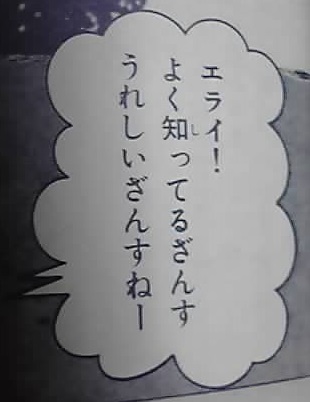 エライ!
よく知ってるざんす
うれしいざんすねー
し